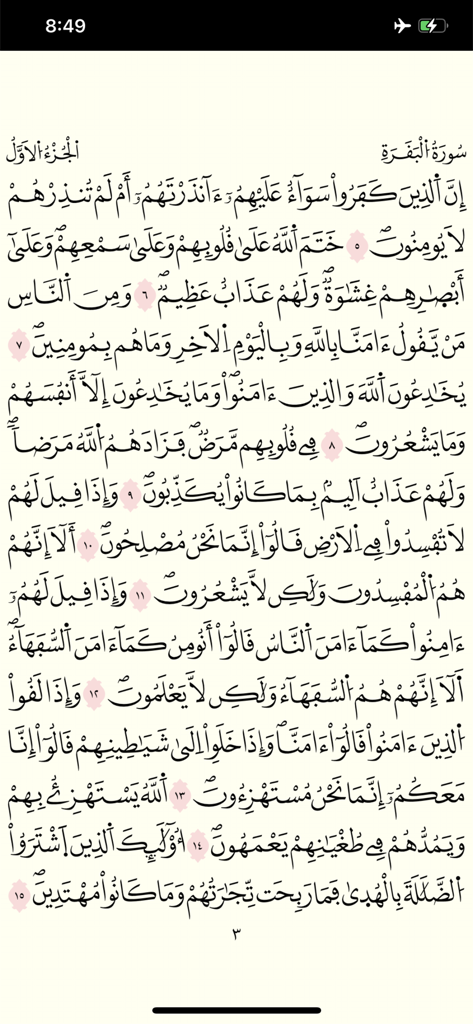 8:49
سُورَةُ الْبَقَرَةِ
الْجُزْءُ الْأَوَّلُ
إِنَّ اَ۬لذِينَ كَفَرُواْ سَوَآءٌ عَلَيْهِمُۥٓ ءَآنذَرْتَهُمُۥٓ أَمْ لَمْ تُنذِرْهُمْ
لَا يُومِنُونَۖ ٥ خَتَمَ اَ۬للَّهُ عَلَىٰ قُلُوبِهِمْ وَعَلَىٰ سَمْعِهِمْۖ وَعَلَىٰٓ
أَبْصٰ۪رِهِمْ غِشَٰوَةٞۖ وَلَهُمْ عَذَابٌ عَظِيمٞۖ ٦ وَمِنَ اَ۬لنَّاسِ
مَنْ يَّقُولُ ءَامَنَّا بِاللَّهِ وَبِالْيَوْمِ اِ۬لَاخِرِ وَمَا هُم بِمُومِنِينَۖ ٧
يُخَٰدِعُونَ اَ۬للَّهَ وَالذِينَ ءَامَنُواْۖ وَمَا يُخَٰدِعُونَ إِلَّآ أَنفُسَهُمْ
وَمَا يَشْعُرُونَۖ ٨ فِے قُلُوبِهِم مَّرَضٞۖ فَزَادَهُمُ اُ۬للَّهُ مَرَضاٗۖ
وَلَهُمْ عَذَابٌ اَلِيمُۢ بِمَا كَانُواْ يُكَذِّبُونَۖ ٩ وَإِذَا قِيلَ لَهُمْ
لَا تُفْسِدُواْ فِے اِ۬لَارْضِ قَالُوٓاْ إِنَّمَا نَحْنُ مُصْلِحُونَۖ ١٠ أَلَآ إِنَّهُمْ
هُمُ اُ۬لْمُفْسِدُونَ وَلَٰكِن لَّا يَشْعُرُونَۖ ١١ وَإِذَا قِيلَ لَهُمُۥٓ
ءَامِنُواْ كَمَآ ءَامَنَ اَ۬لنَّاسُ قَالُوٓاْ أَنُومِنُ كَمَآ ءَامَنَ اَ۬لسُّفَهَآءُۖ
أَلَآ إِنَّهُمْ هُمُ اُ۬لسُّفَهَآءُ وَلَٰكِن لَّا يَعْلَمُونَۖ ١٢ وَإِذَا لَقُواْ
اُ۬لذِينَ ءَامَنُواْ قَالُوٓاْ ءَامَنَّاۖ وَإِذَا خَلَوِاْ اِلَىٰ شَيَٰطِينِهِمْ قَالُوٓاْ إِنَّا
مَعَكُمُۥٓ إِنَّمَا نَحْنُ مُسْتَهْزِءُونَۖ ١٣ اَ۬للَّهُ يَسْتَهْزِئُ بِهِمْ
وَيَمُدُّهُمْ فِے طُغْيَٰنِهِمْ يَعْمَهُونَۖ ١٤ أُوْلَٰٓئِكَ اَ۬لذِينَ اَ۪شْتَرَوُاْ
اُ۬لضَّلَٰلَةَ بِالْهُد۪ىٰ فَمَا رَبِحَت تِّجَٰرَتُهُمْ وَمَا كَانُواْ مُهْتَدِينَۖ ١٥
٣